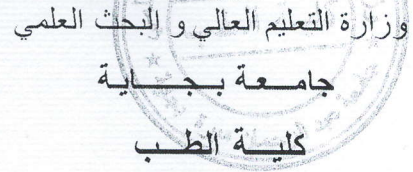 وزارة التعليم العالي و البحث العلمي
جامعة بجاية
كلية الطب